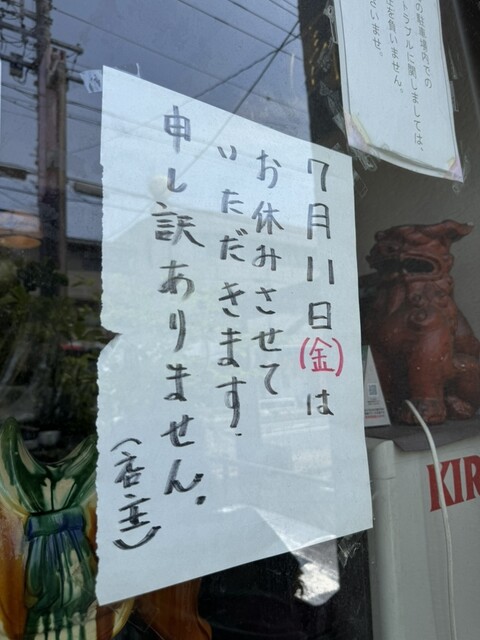 の駐車場内での
トラブルに関しましては、
任を負いません。
さいませ。
7月11日(金)は
お休みさせて
いただきます.
申し訳ありません.
(店主)
KIR